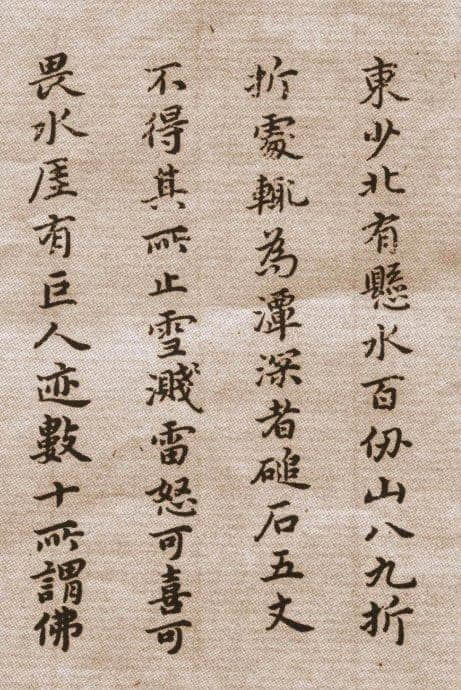 東少北有懸水百仞山八九折
折處輒為潭深者磓石五丈
不得其所止雪濺雷怒可喜可
畏水厓有巨人迹數十所謂佛